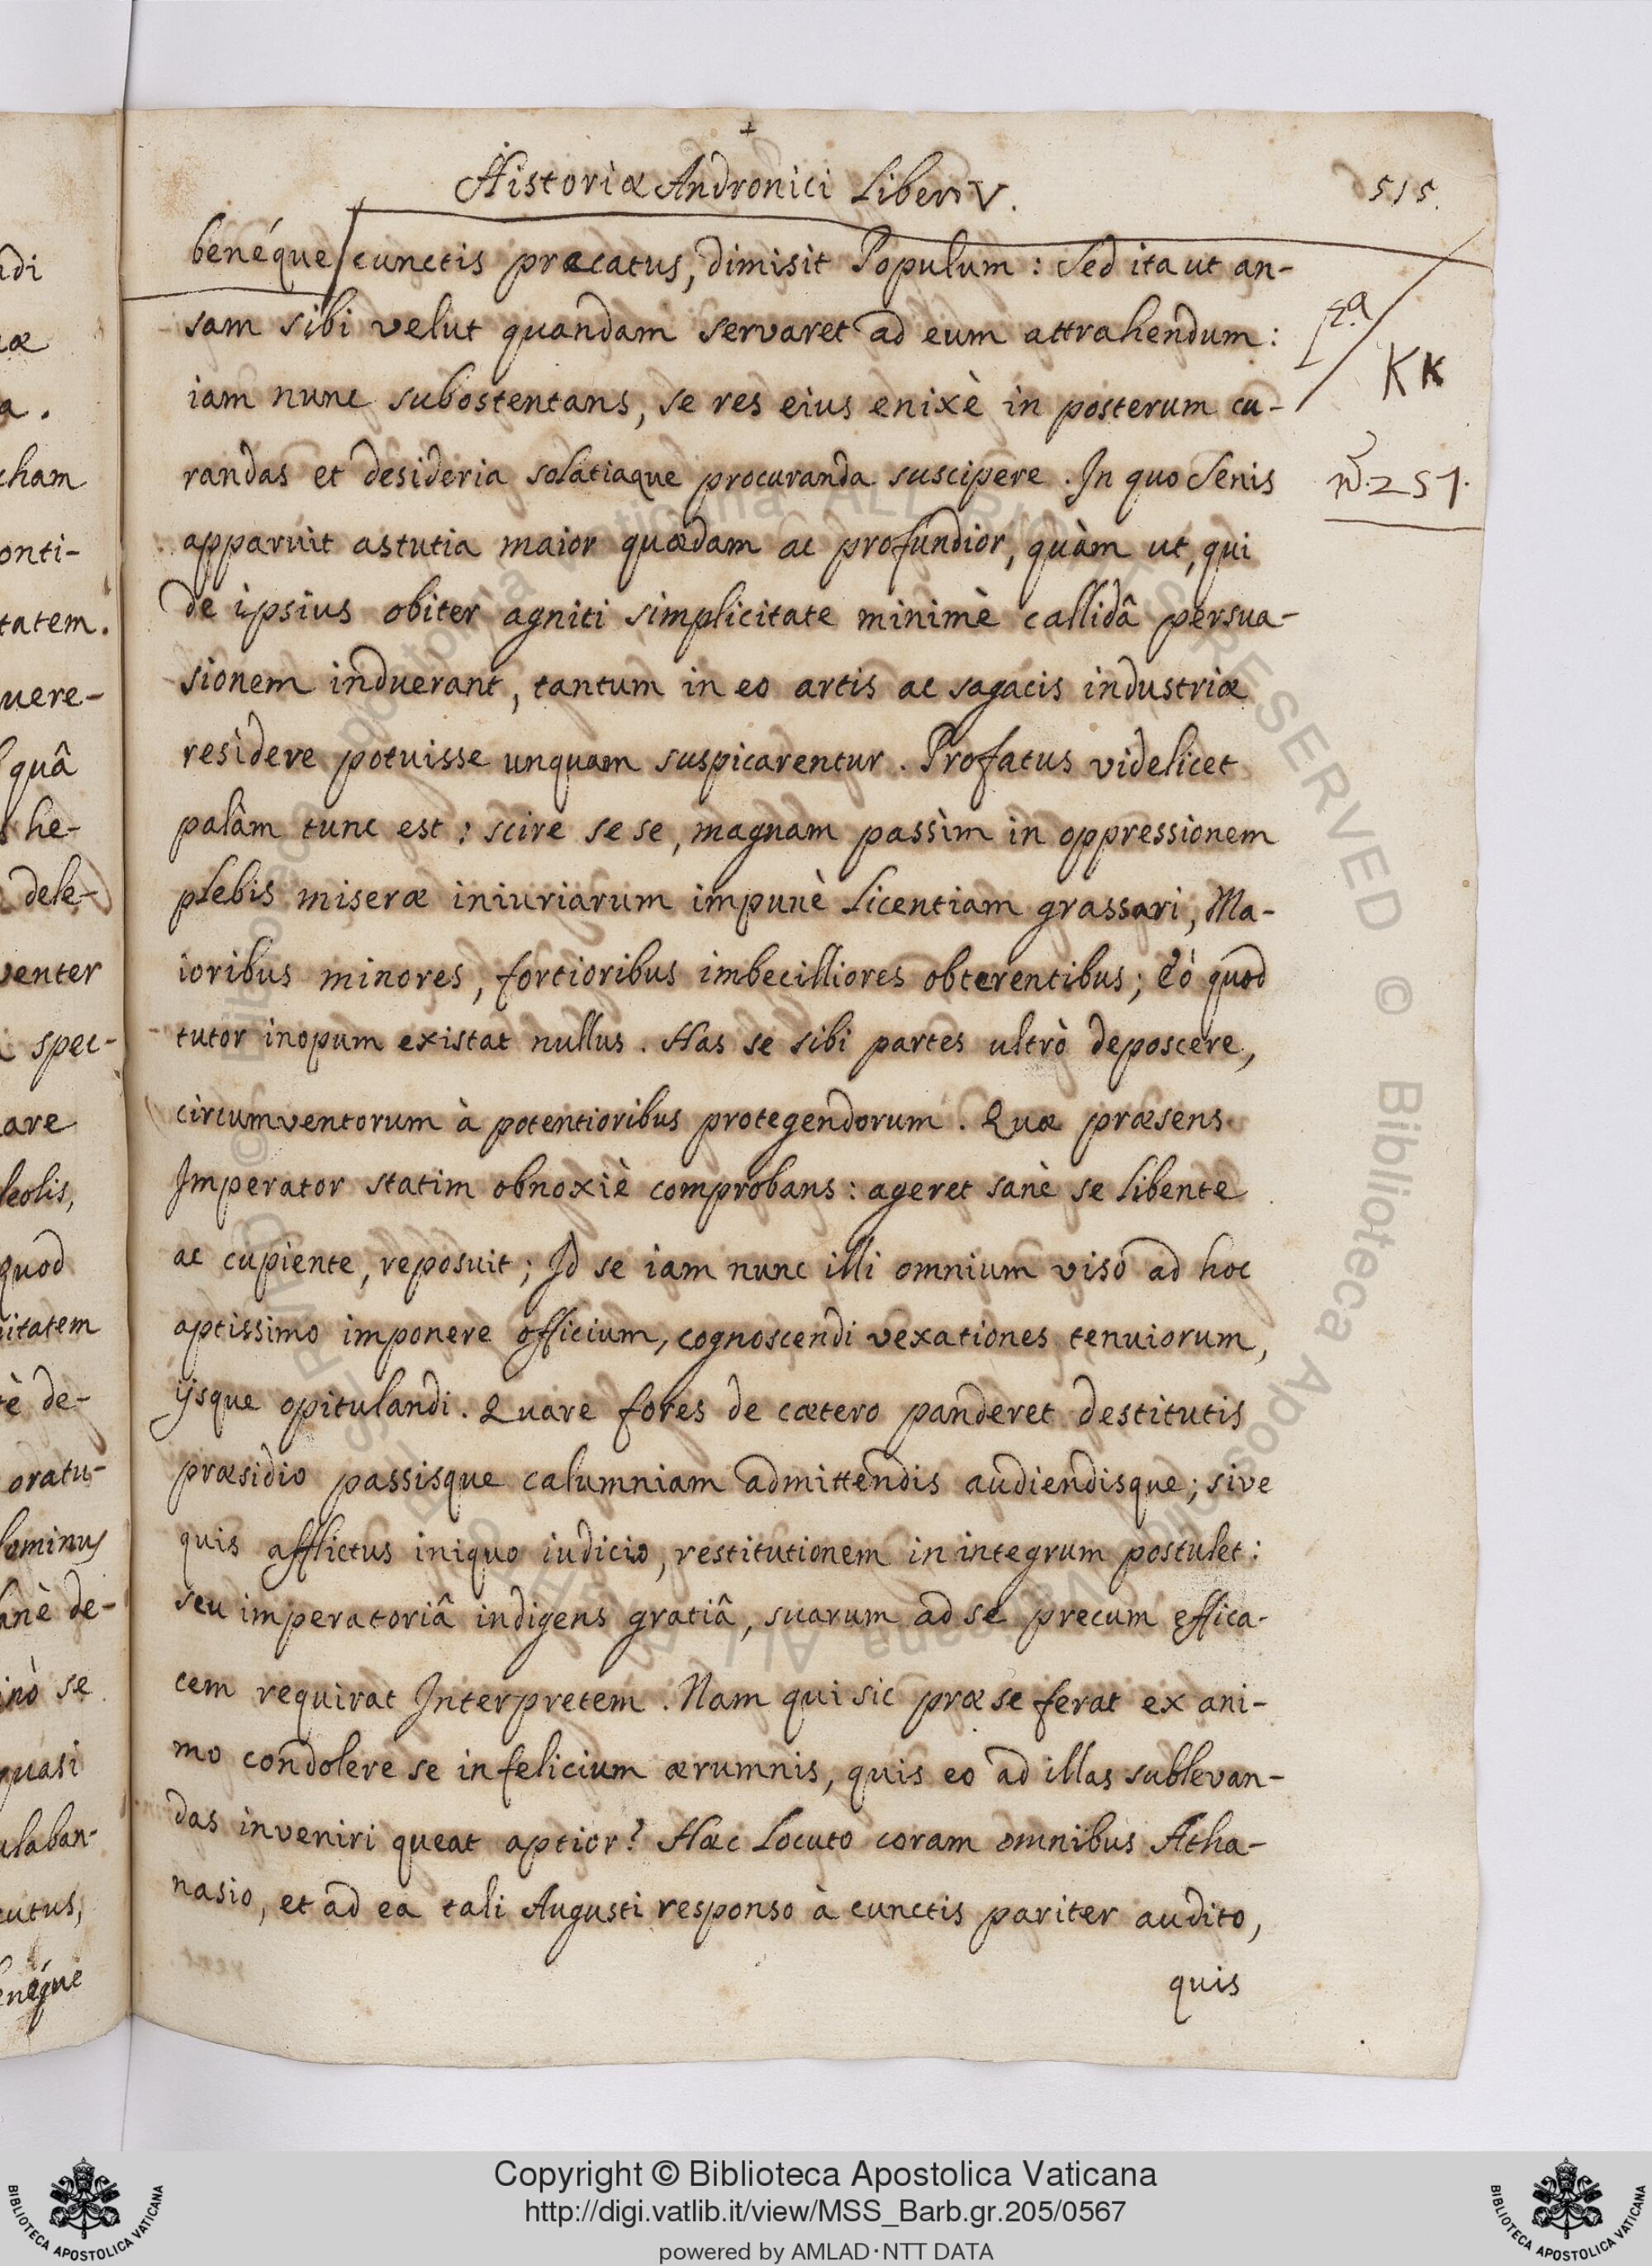 Historiæ Andronici Liber V.
515.
benéque cunctis præcatus, dimisit Populum : Sed ita ut an-
sam sibi velut quandam servaret ad eum attrahendum :
iam nunc subostentans, se res eius enixè in posterum cu-
randas et desideria solatiaque procuranda suscipere . In quo Senis
apparuit astutia maior quædam ac profundior, quàm ut, qui
de ipsius obiter agniti simplicitate minimè callidâ persua-
sionem induerant, tantum in eo artis ac sagacis industriæ
residere potuisse unquam suspicarentur . Profatus videlicet
palâm tunc est : scire se se, magnam passim in oppressionem
plebis miseræ iniuriarum impunè licentiam grassari, Ma-
ioribus minores, fortioribus imbecilliores obterentibus ; Eò quod
tutor inopum existat nullus . Has se sibi partes ultrò deposcere,
circumventorum à potentioribus protegendorum . Quæ præsens
Imperator statim obnoxiè comprobans : ageret sanè se libente
ac cupiente, reposuit ; Id se iam nunc illi omnium viso ad hoc
aptissimo imponere officium, cognoscendi vexationes tenuiorum,
ijsque opitulandi . Quare fores de cætero panderet destitutis
præsidio passisque calumniam admittendis audiendisque ; sive
quis afflictus iniquo iudicio, restitutionem in integrum postulet :
seu imperatoriâ indigens gratiâ, suarum ad se precum effica-
cem requirat Interpretem . Nam qui sic præ se ferat ex ani-
mo condolere se infelicium ærumnis, quis eo ad illas sublevan-
das inveniri queat aptior ? Hæc locuto coram omnibus Atha-
nasio, et ad ea tali Augusti responso à cunctis pariter audito,
quis
KK
251.
di
æ
a .
cham
onti-
tatem.
uere-
quâ
he-
dele-
venter
spec-
are
leolis,
quod
itatem
è de-
oratu-
leminus
anè de-
inò se
quasi
ulaban-
cutus,
enéque
© Biblioteca Apostolica Vaticana ALL RIGHTS RESERVED © Biblioteca Apostolica Vaticana ALL RIGHTS RESERVED
Copyright © Biblioteca Apostolica Vaticana
http://digi.vatlib.it/view/MSS_Barb.gr.205/0567
powered by AMLAD · NTT DATA
BIBLIOTECA APOSTOLICA VATICANA
BIBLIOTECA APOSTOLICA VATICANA